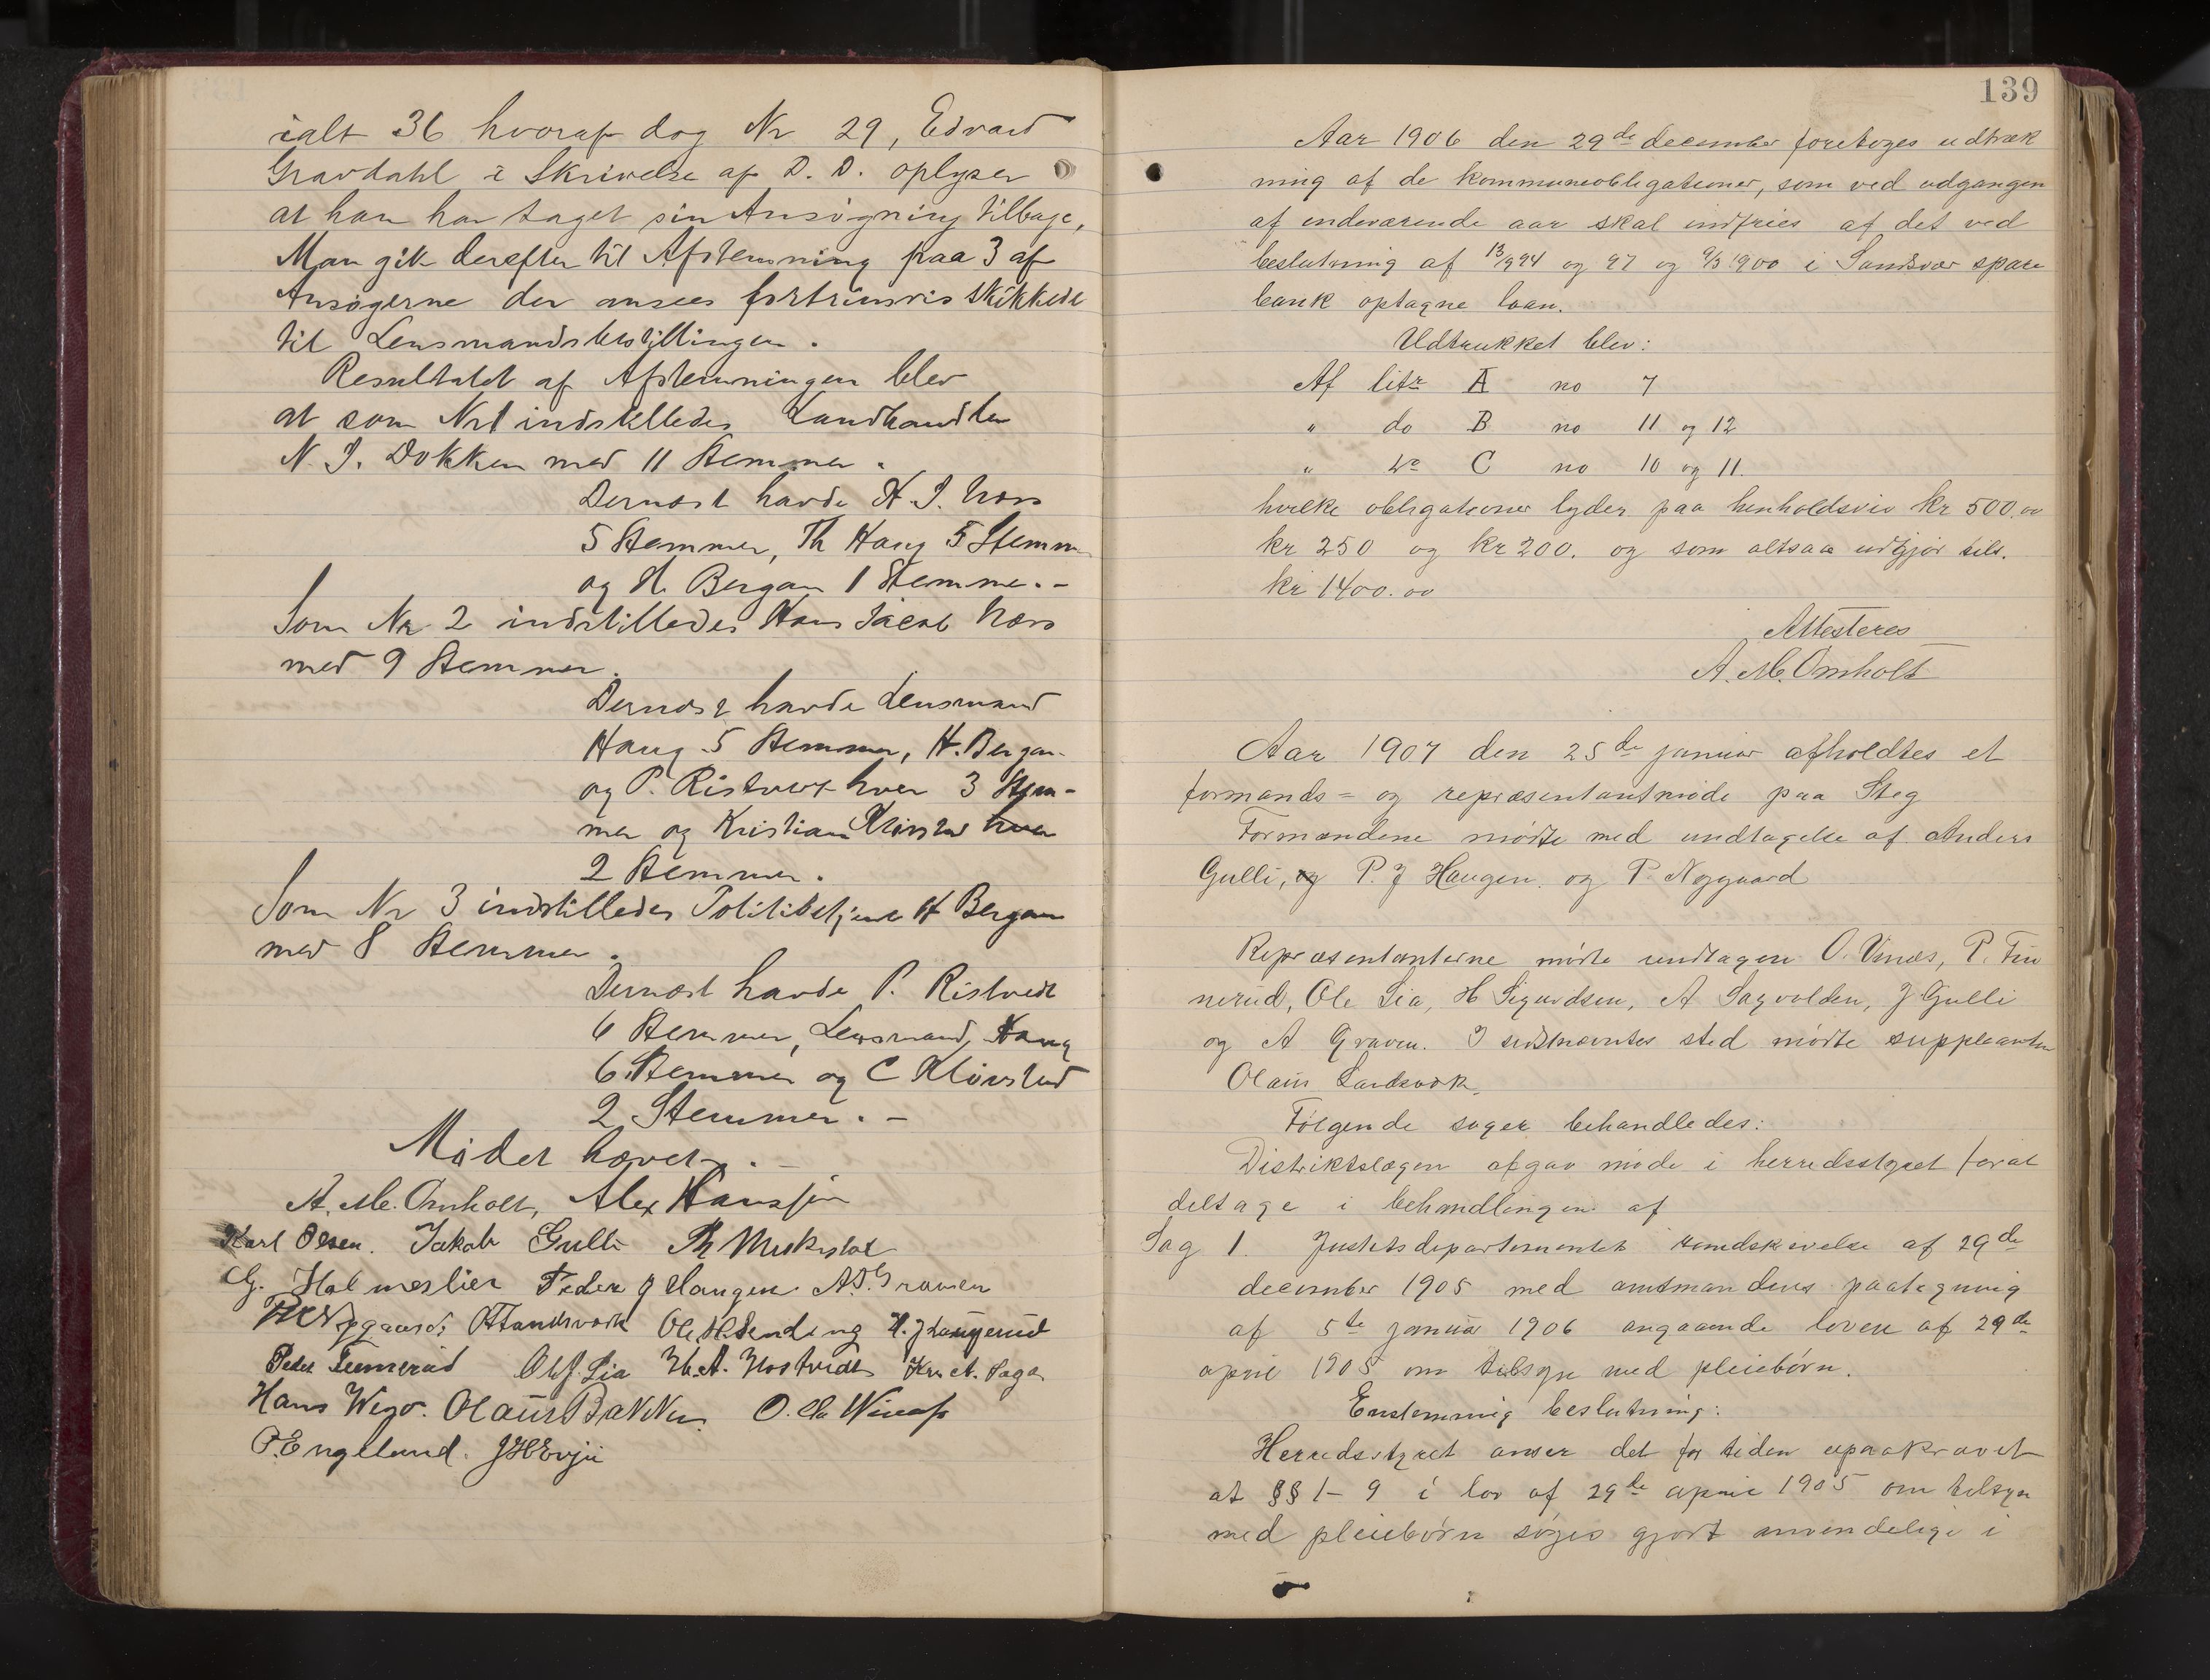 ialt 36 hvoraf dog Nr 29, Edvard
Gravdahl i Skrivelse af D. D. oplyser
at han har taget sin Ansøgning tilbage,
Man gik derefter til Afstemning paa 3 af
Ansøgerne der ansees fortrinsvis skikkede
til Lensmandsbestillingen.
Resultatet af Afstemningen blev
at som Nr 1 indstilledes Landhandler
N. J. Dokken med 11 Stemmer.
Dernæst havde H. J. Næss
5 Stemmer, Th Haug 5 Stemm
og H. Bergan 1 Stemme.-
Som Nr 2 indstilledes Hans Jacob Næss
med 9 Stemmer.
Dernæst havde Lensmand
Haug 5 Stemmer, H. Bergan
og P. Ristvedt hver 3 Stem-
mer og Kristian Kløvstad hver
2 Stemmer.
Som Nr 3 indstilledes Politibetjent H Bergan
med 8 Stemmer.
Dernæst havde P. Ristvedt
6 Stemmer, Lensmand Haug
6 Stemmer og C Kløvstad
2 Stemmer.-
Mødet hævet.-
A. M. Omholt, Alex Hansson
Karl Olsen. Jakob Gulli Th Mukestad
G. Holmeslier Peder J Haugen A. P. Graven
P Nygaard O Landsverk Ole H. Sending H. J Laugerud
Peder Tinnerud Ole J. Lia H. A. Hostvedt Kr. A. Saga
Hans Wego. Olaus Bakken O. Chr Winæs
P. Engeland. J H Evju
139
Aar 1906 den 29de december foretoges udtræk
ning af de kommuneobligationer, som ved udgangen
af indeværende aar skal indfries af det ved
beslutning af 13/9 94 og 97 og 9/3 1900 i Sandsvær spare
bank optagne laan.
Udtrukket blev:
Af litr A no 7
" do B no 11 og 12
" do C no 10 og 11.
hvilke obligationer lyder paa henholdsvis kr 500.00
kr 250 og kr 200. og som altsaa udgjør tils.
kr 1400.00
Attesteres
A. M. Omholt
Aar 1907 den 25de januar afholdtes et
formands- og repræsentantmøde paa Steg
Formændene mødte med undtagelse af Anders
Gulli, og P. J Haugen og P. Nygaard
Repræsentanterne mødte undtagen O. Vinæs, P. Tin
nerud, Ole Lia, H Sigurdsen, A Sagvolden, J Gulli
og A Graven. I sidstnævntes sted mødte suppleanten
Olaus Landsverk.
Følgende sager behandledes:
Distriktslægen afgav møde i herredsstyret forat
deltage i behandlingen af
Sag 1. Justitsdepartementets rundskrivelse af 29de
december 1905 med amtmandens paategning
af 5te januar 1906 angaaende loven af 29de
april 1905 om tilsyn med pleiebørn.
Enstemmig beslutning:
Herredsstyret anser det for tiden upaakrævet
at §§ 1-9 i lov af 29de april 1905 om tilsyn
med pleiebørn søges gjort anvendelige i